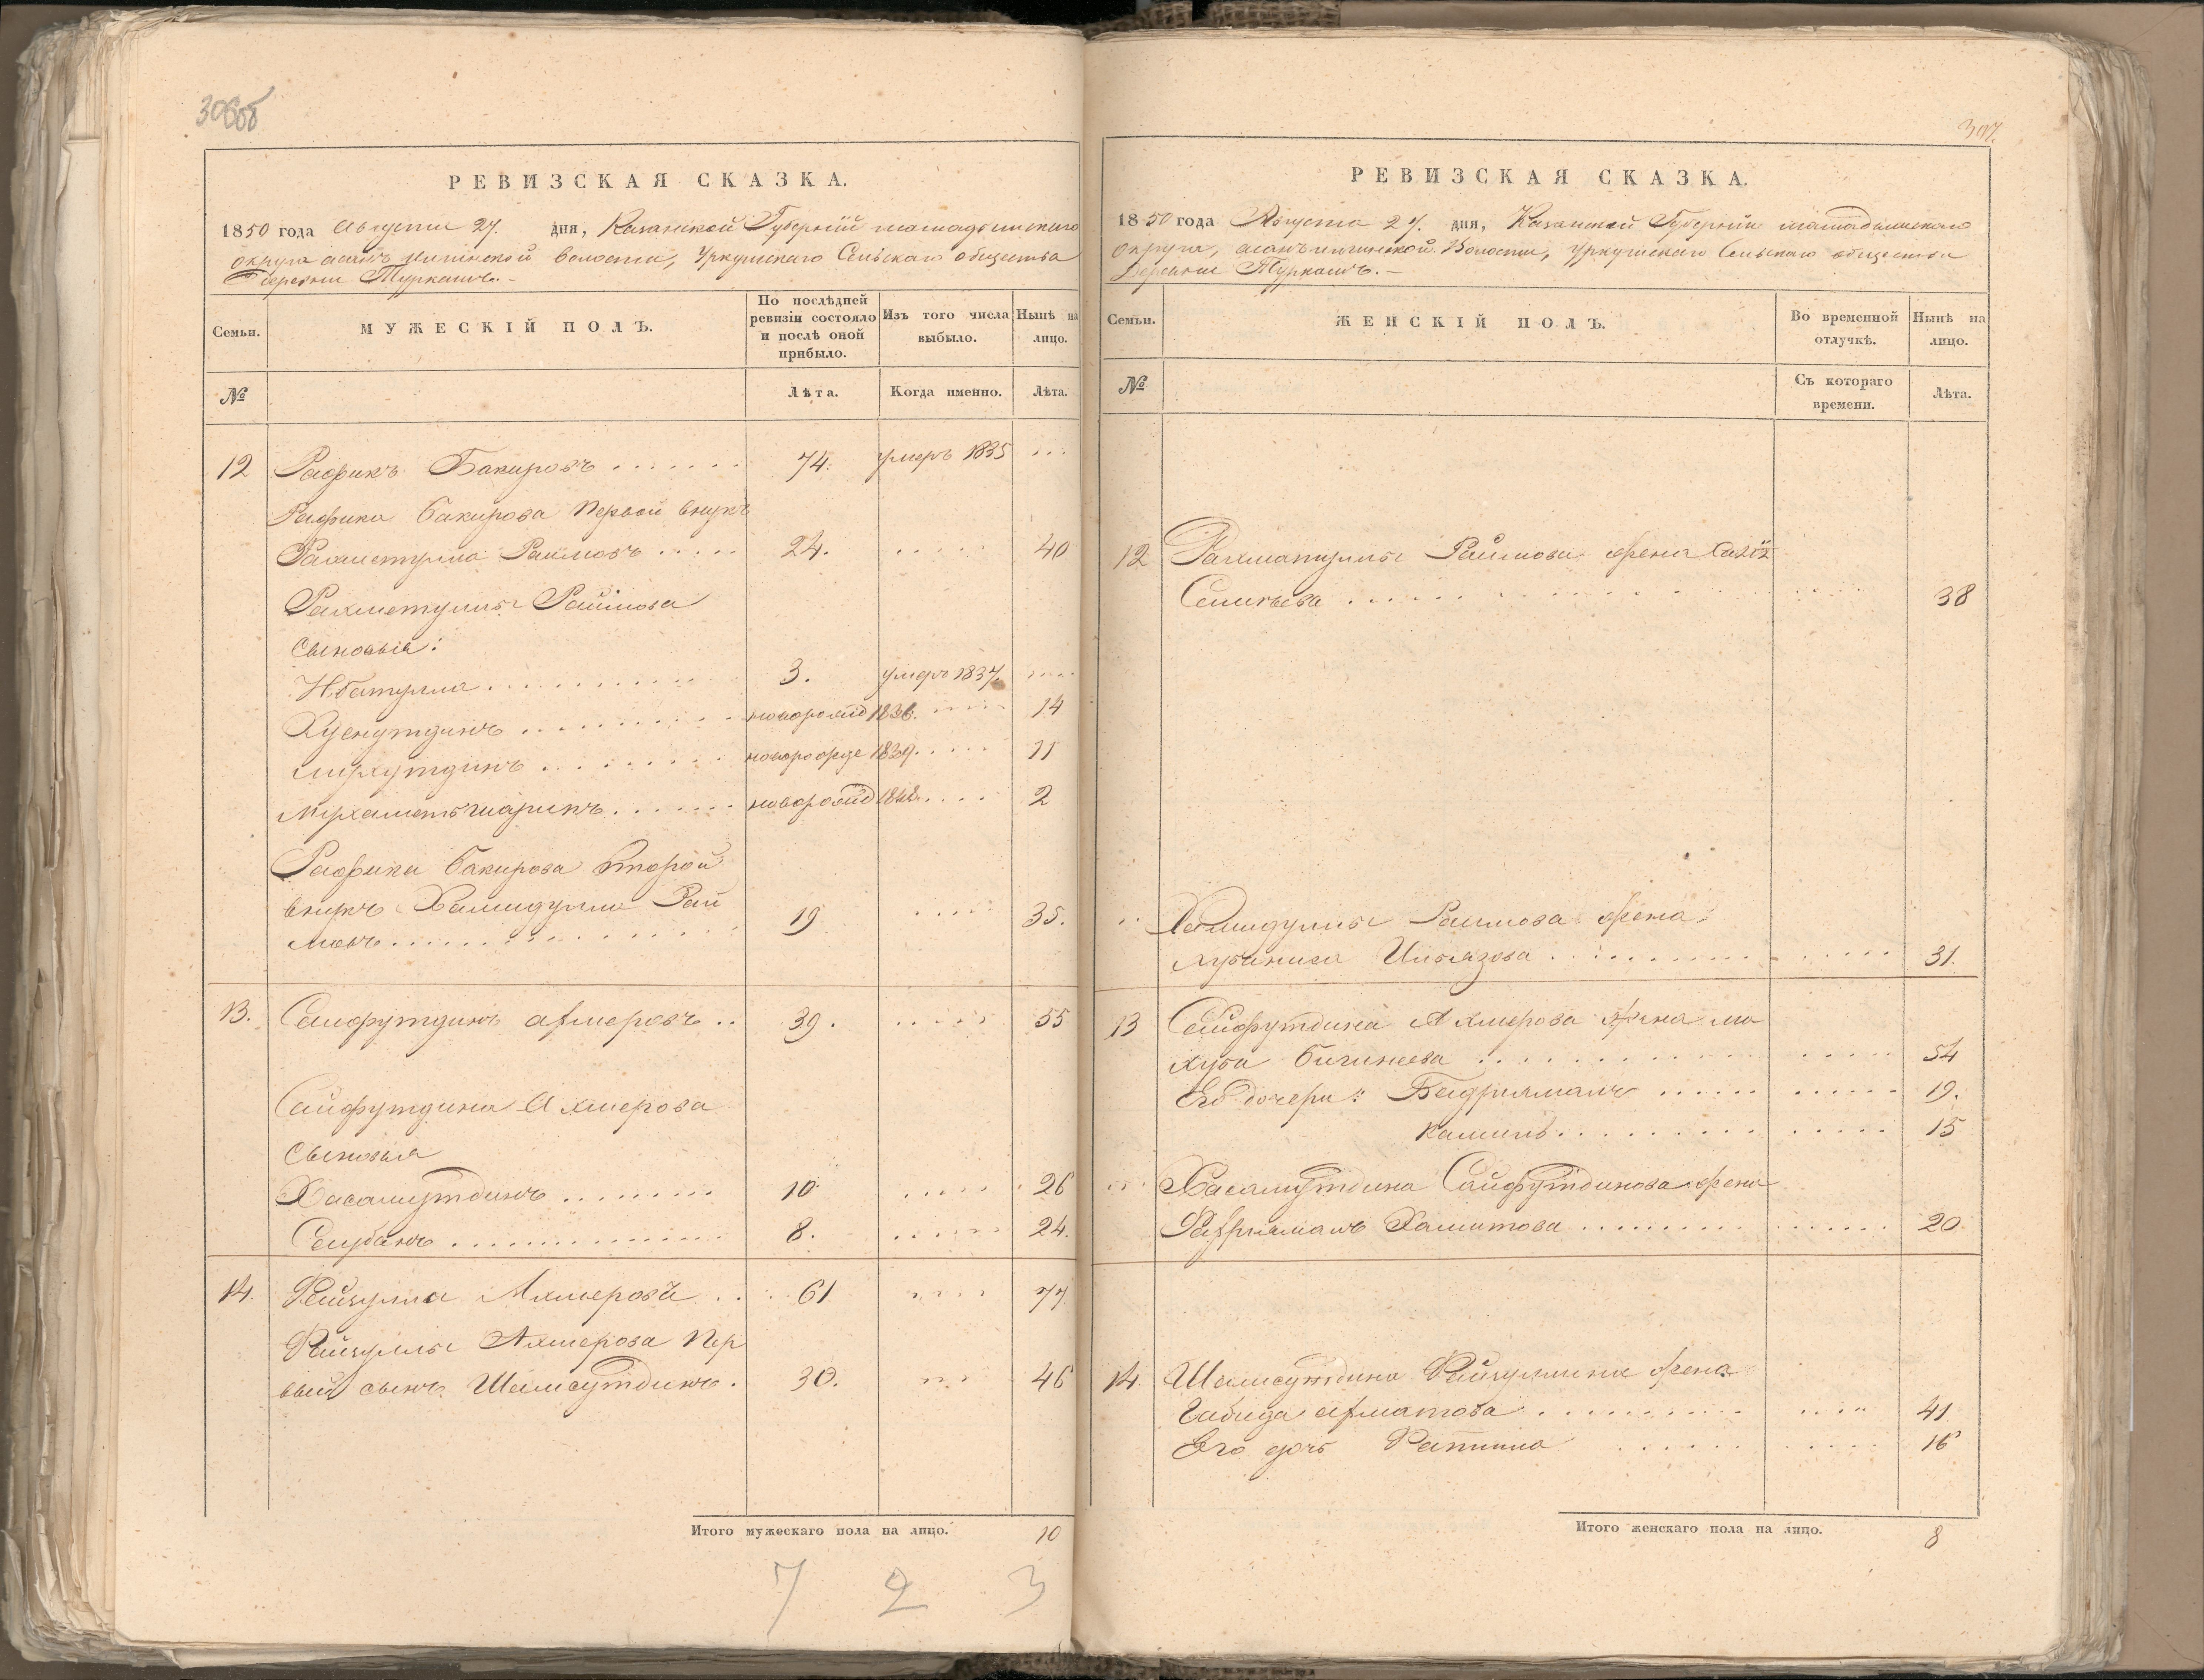 306об
РЕВИЗСКАЯ СКАЗКА.
1850 года Августа 27. дня, Казанской Губерніи мамадышскаго
округа асанъ илгинской волости, Уркушскаго Сельскаго общества
Деревни Туркашъ.
Семьи. МУЖЕСКІЙ ПОЛЪ. По послѣдней ревизіи состояло и послѣ оной прибыло. Изъ того числа выбыло. Нынѣ на лицо.
№ Лѣта. Когда именно. Лѣта.
12 Рафикъ Бакировъ ....... 74. умеръ 1835 ...
Рафика Бакирова Первой внукъ
Рахметулла Раимовъ ..... 24. ..... 40
Рахметуллы Раимова
Сыновья:
Нбатулла ........... 3. умеръ 1837. ....
Хуснутдинъ ......... новорожд 1836. ..... 14
.......... новорожде 1839. .... 11
Мухаметьшарипъ ...... новорожд 1848. .... 2
Рафика Бакирова второй
внукъ Хамидулла Раи
мовъ ................ 19 ..... 35.
13. Сайфутдинъ Ахмеровъ .. 39. ..... 55
Сайфутдина Ахмерова
Сыновья
Хасамутдинъ ........ 10 ..... 26
................ 8. ..... 24.
14. Файзулла Ахмеровъ ... 61 .... 77
Файзуллы Ахмерова Пер
вый сынъ Шамсутдинъ. 30. ... 46
Итого мужескаго пола на лицо. 10
7 2 3
307.
РЕВИЗСКАЯ СКАЗКА.
1850 года Августа 27. дня, Казанской Губерніи мамадышскаго
округа, асанъ илгинской Волости, Уркушскаго Сельскаго общества
Деревни Туркашъ.
Семьи. ЖЕНСКІЙ ПОЛЪ. Во временной отлучкѣ. Нынѣ на лицо.
№ Съ котораго времени. Лѣта.
12 Рахматуллы Раимова жена
............... 38
... Хамидуллы Раимова жена
Хубиниса Ильязова ............. ..... 31.
13 Сайфутдина Ахмерова жена ма
хуба Бигинеева ............ ..... 54
Его дочери: Бадриямалъ ...... ...... 19.
Камиля .......... ..... 15
... Хасамутдина Сайфутдинова жена
Хамитова .......... ...... 20
14. Шамсутдина Файзуллина жена
Габида Ахматова .......... .... 41
Его дочь Фатима ...... ..... 16
Итого женскаго пола на лицо. 8